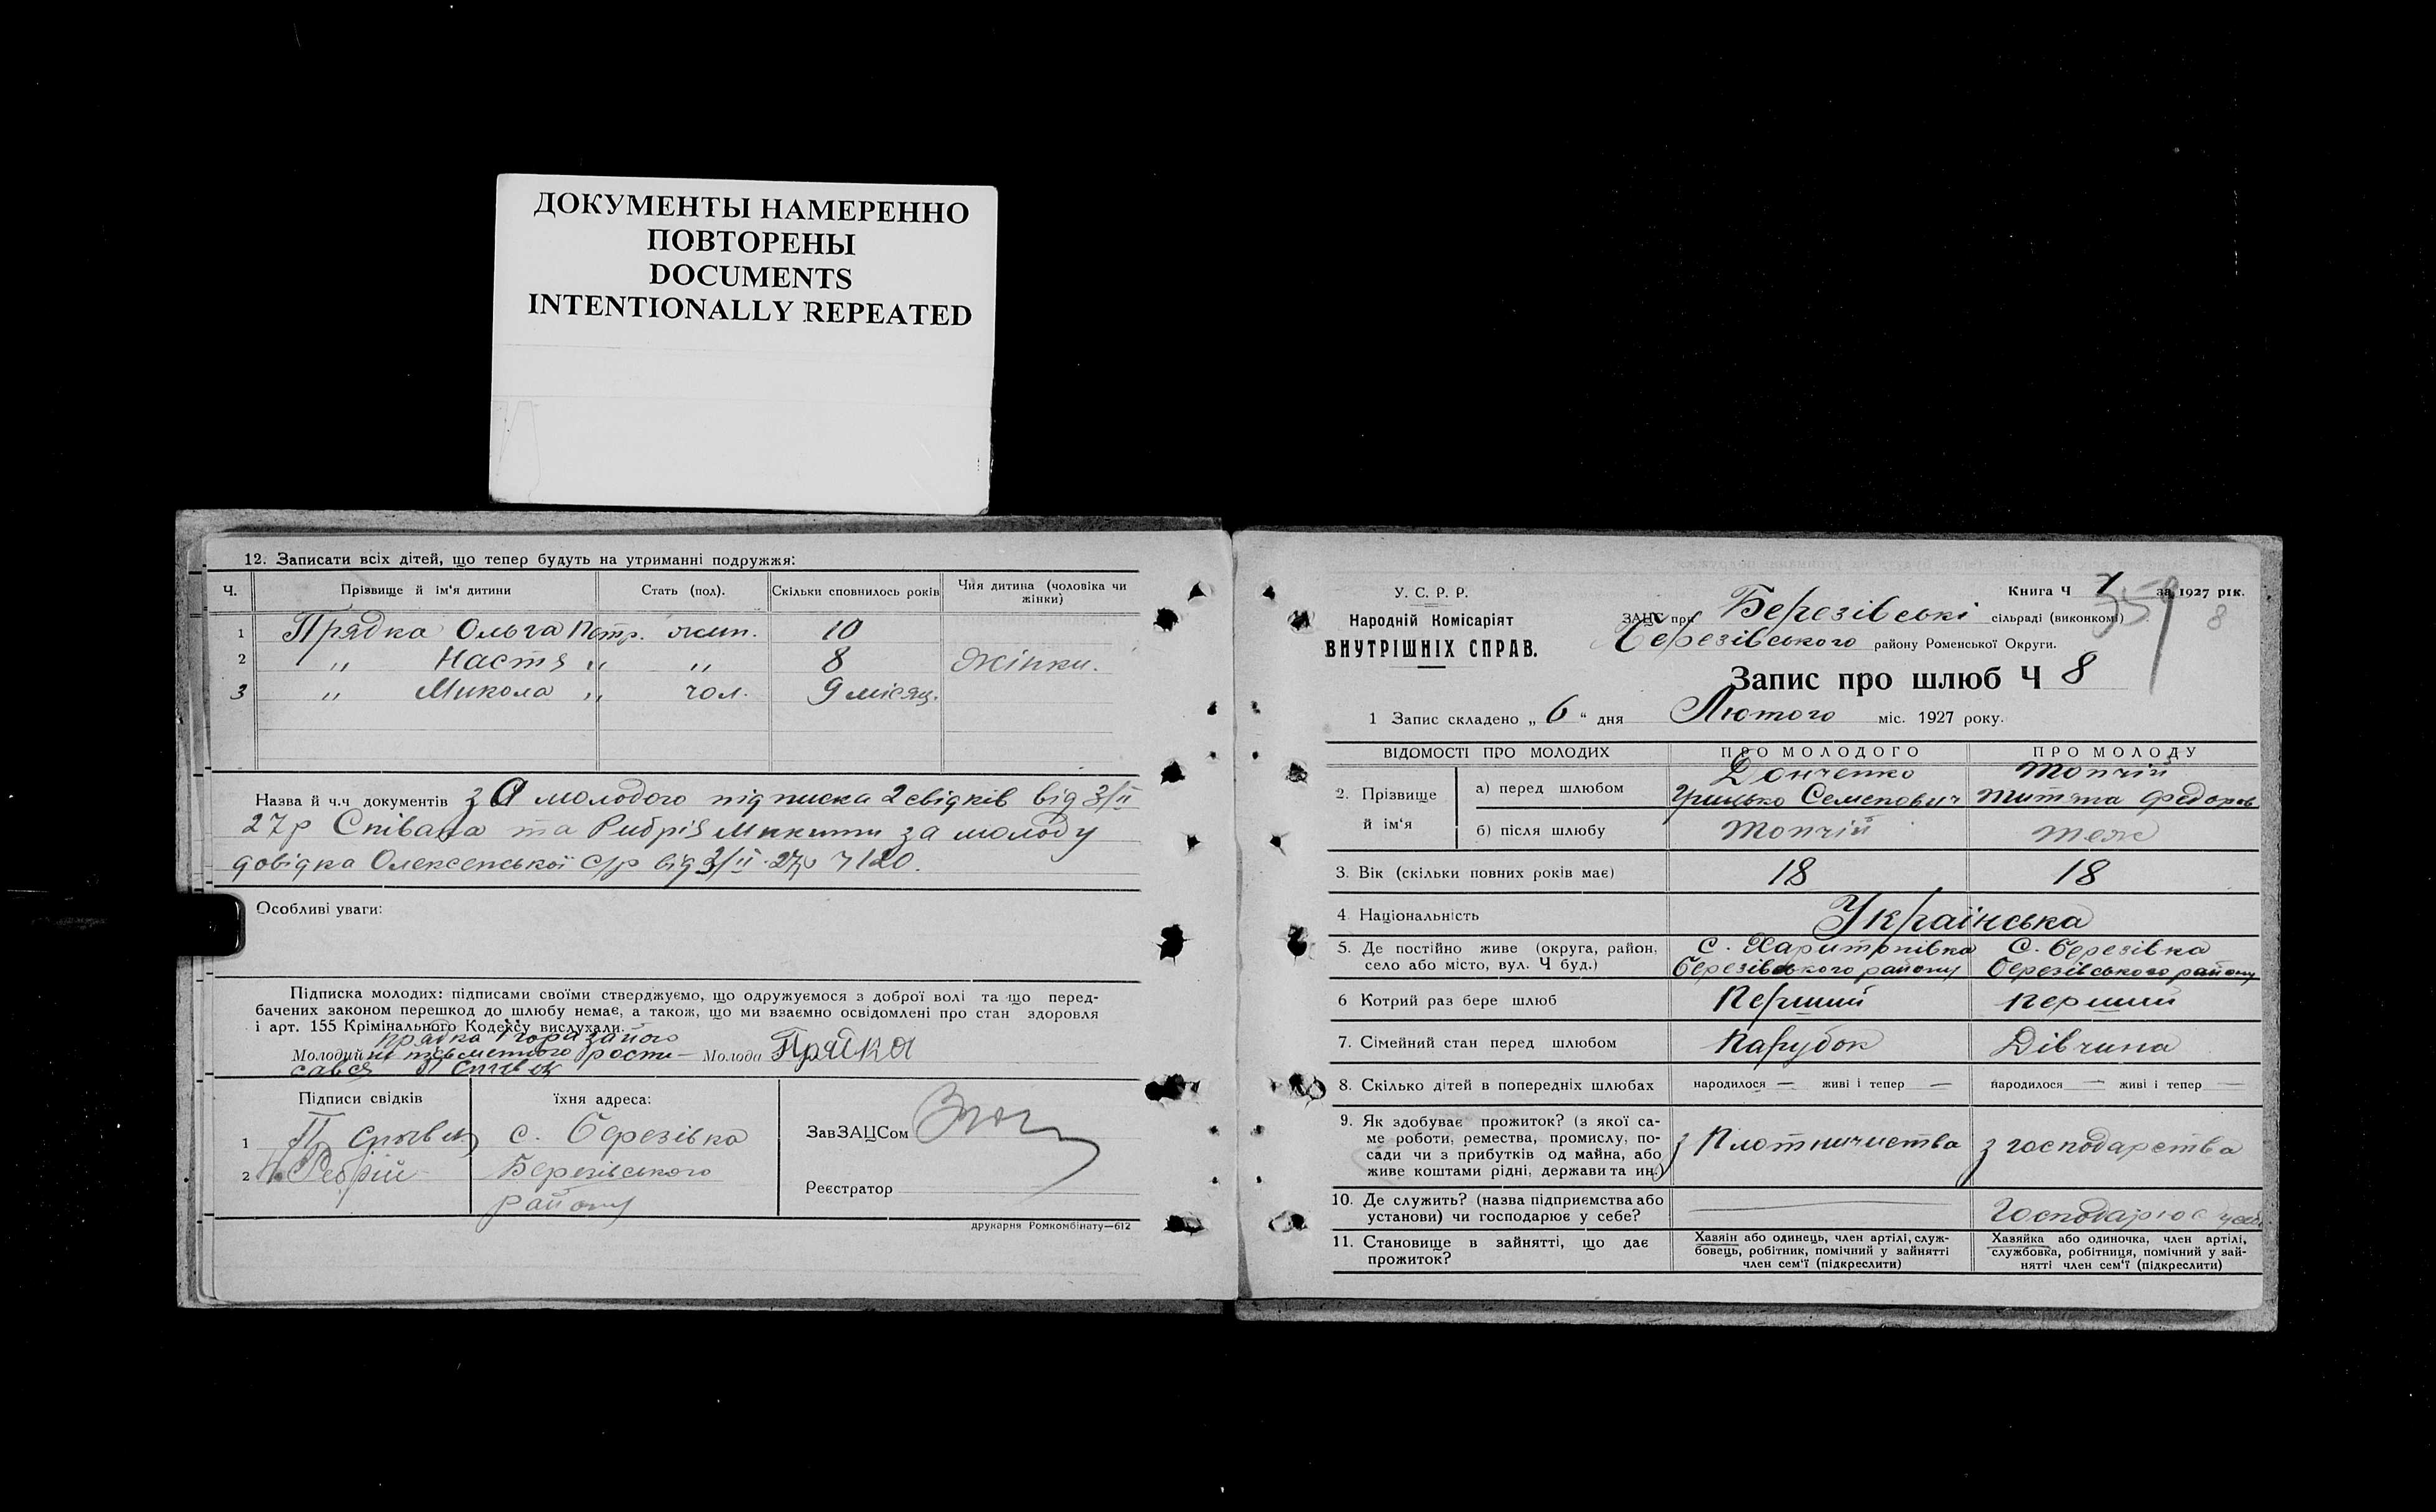 ДОКУМЕНТЫ НАМЕРЕННО
ПОВТОРЕНЫ
DOCUMENTS
INTENTIONALLY REPEATED
12. Записати всіх дітей, що тепер будуть на утриманні подружжя:
Ч. Прізвище й ім'я дитини Стать (пол). Скільки сповнилось років Чия дитина (чоловіка чи жінки)
1 Прядка Ольга Петр. жін. 10
2 " Настя " " 8 Жінки.
3 " Микола " чол. 9 місяц.
Назва й ч.ч документів за молодого підписка 2 свідків від 3/II
27р Співака та Ребрія Микити за молоду
довідка Олексенської с/р від 3/II 27р Ч 120.
Особливі уваги:
Підписка молодих: підписами своїми стверджуємо, що одружуємося з доброї волі та що перед-
бачених законом перешкод до шлюбу немає, а також, що ми взаємно освідомлені про стан здоровля
і арт. 155 Крімінального Кодексу вислухали.
Прядка
Молодий не письменного рости- Молода Прядка
савсь
Підписи свідків їхня адреса:
1 с. Березівка ЗавЗАЦСом
2 Ребрій Березівського
району Реєстратор
друкарня Ромкомбінату—612
У. С. Р. Р.
Народній Комісаріят
ВНУТРІШНІХ СПРАВ.
Книга Ч за 1927 рік.
359 8
ЗАЦС при Березівські сільраді (виконкомі)
Березівського району Роменської Округи.
Запис про шлюб Ч 8
1 Запис складено „ 6 " дня Лютого міс. 1927 року.
ВІДОМОСТІ ПРО МОЛОДИХ ПРО МОЛОДОГО ПРО МОЛОДУ
2. Прізвище й ім'я а) перед шлюбом Донченко Грицько Семенович Топчій Титяна Федоров
б) після шлюбу Топчій теж
3. Вік (скільки повних років має) 18 18
4 Національність Українська
5. Де постійно живе (округа, район, с. Харитонівка с. Березівка
село або місто, вул. Ч буд.) Березівського району Березівського району
6 Котрий раз бере шлюб Перший перший
7. Сімейний стан перед шлюбом Парубок Дівчина
8. Скілько дітей в попередніх шлюбах народилося — живі і тепер — народилося — живі і тепер —
9. Як здобуває прожиток? (з якої са-
ме роботи, ремества, промислу, по-
сади чи з прибутків од майна, або з Плотничиства з господарства
живе коштами рідні, держави та ин.)
10. Де служить? (назва підприємства або
установи) чи господарює у себе? — Господарює у себе
11. Становище в зайнятті, що дає прожиток?
Хазяін або одинець, член артілі, служ-
бовець, робітник, помічний у зайнятті
член сем'ї (підкреслити)
Хазяйка або одиночка, член артілі,
службовка, робітниця, помічний у зай-
нятті член сем'ї (підкреслити)